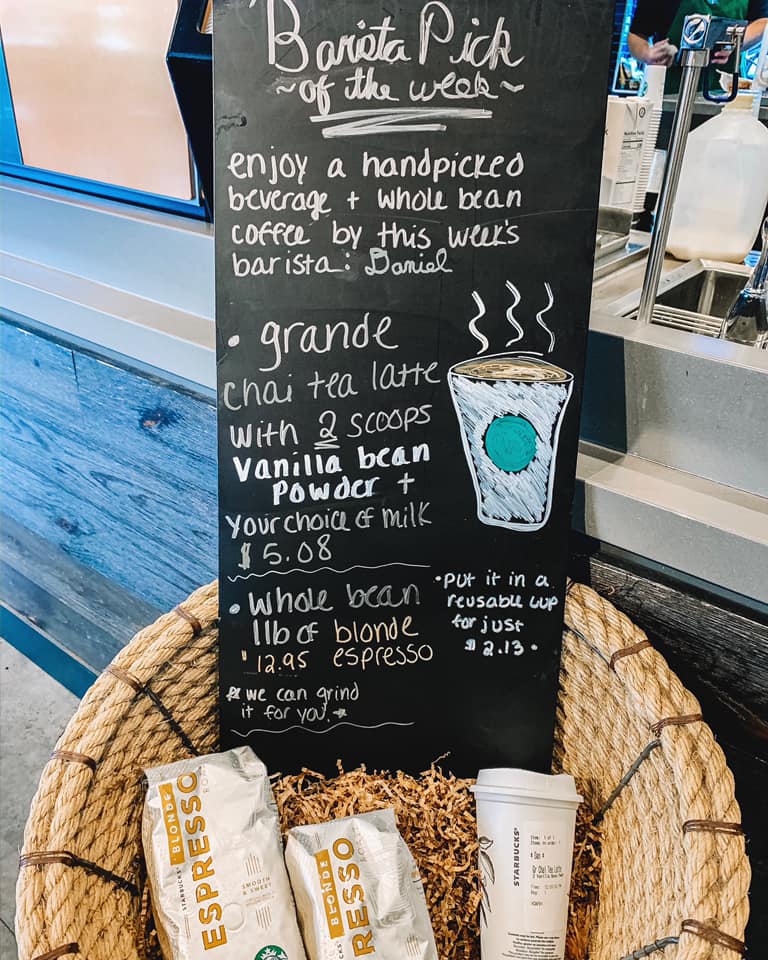 Barista Pick
~of the week~
enjoy a handpicked
beverage + whole bean
coffee by this week's
barista: Daniel
• grande
chai tea latte
with 2 scoops
Vanilla bean
powder +
your choice of milk
$5.08
• whole bean
1lb of blonde
$12.95 espresso
☆ we can grind
it for you. ☆
• put it in a
reusable cup
for just
$2.13 •
BLONDE
ESPRESSO
STARBUCKS
SMOOTH
& SWEET
BLONDE
RESSO
STARBUCKS
STARBUCKS
Item: 1 of 1
Items in order: 1
Gr Chai Tea Latte